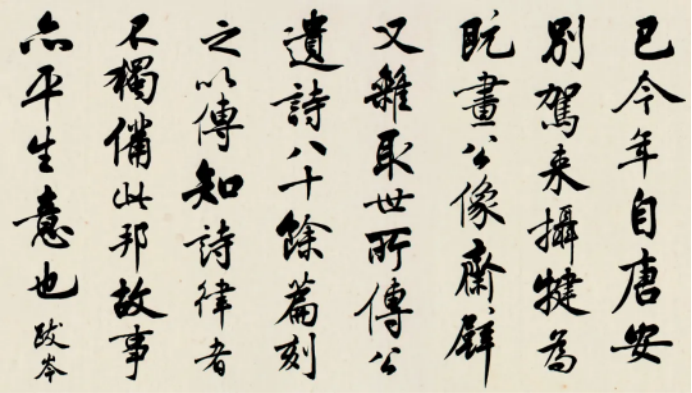 已今年自唐安
別駕来攝犍為
既畫公像齋壁
又雜取世所傳公
遺詩八十餘篇刻
之以傳知詩律者
不獨備此邦故事
亦平生意也 跋岑